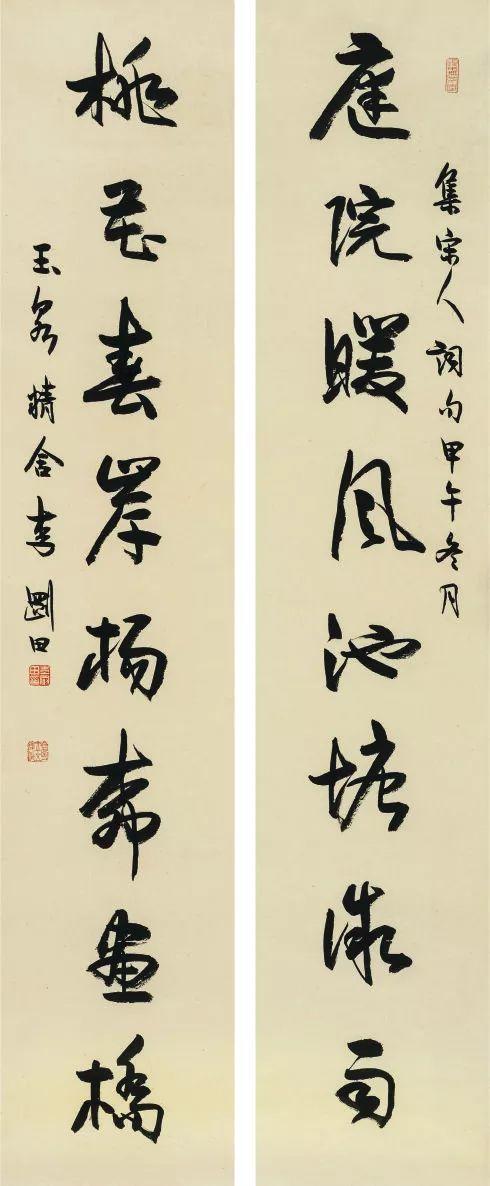 集宋人詞句甲午冬月
庭院暖風池塘微雨
桃花春岸楊柳畫橋
玉泉精舍李剛田